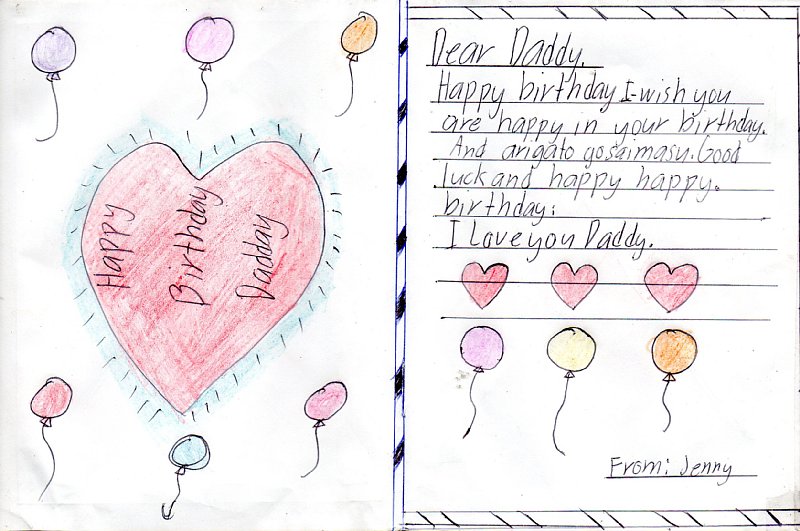 Happy
Birthday
Dadday
Dear Daddy.
Happy birthday I wish you
are happy in your birthday.
And arigato gosaimasu. Good
luck and happy happy.
birthday:
I Love you Daddy.
From: Jenny